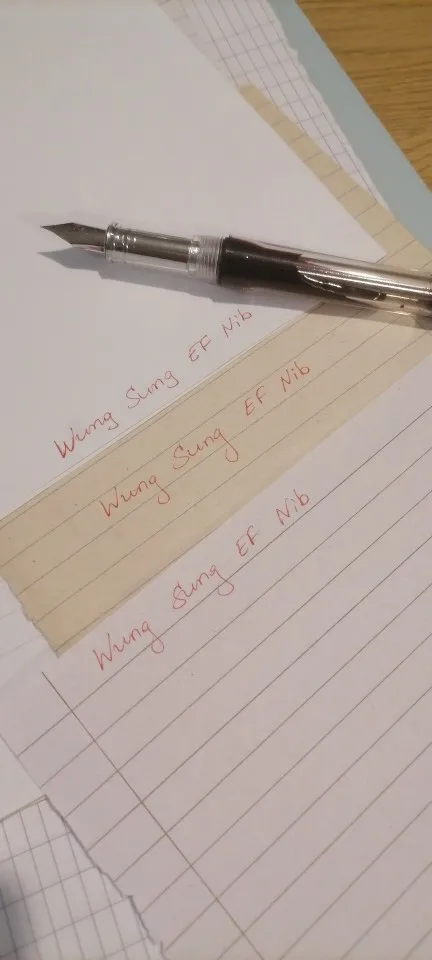 Wung Sung EF Nib
Wung Sung EF Nib
Wung Sung EF Nib